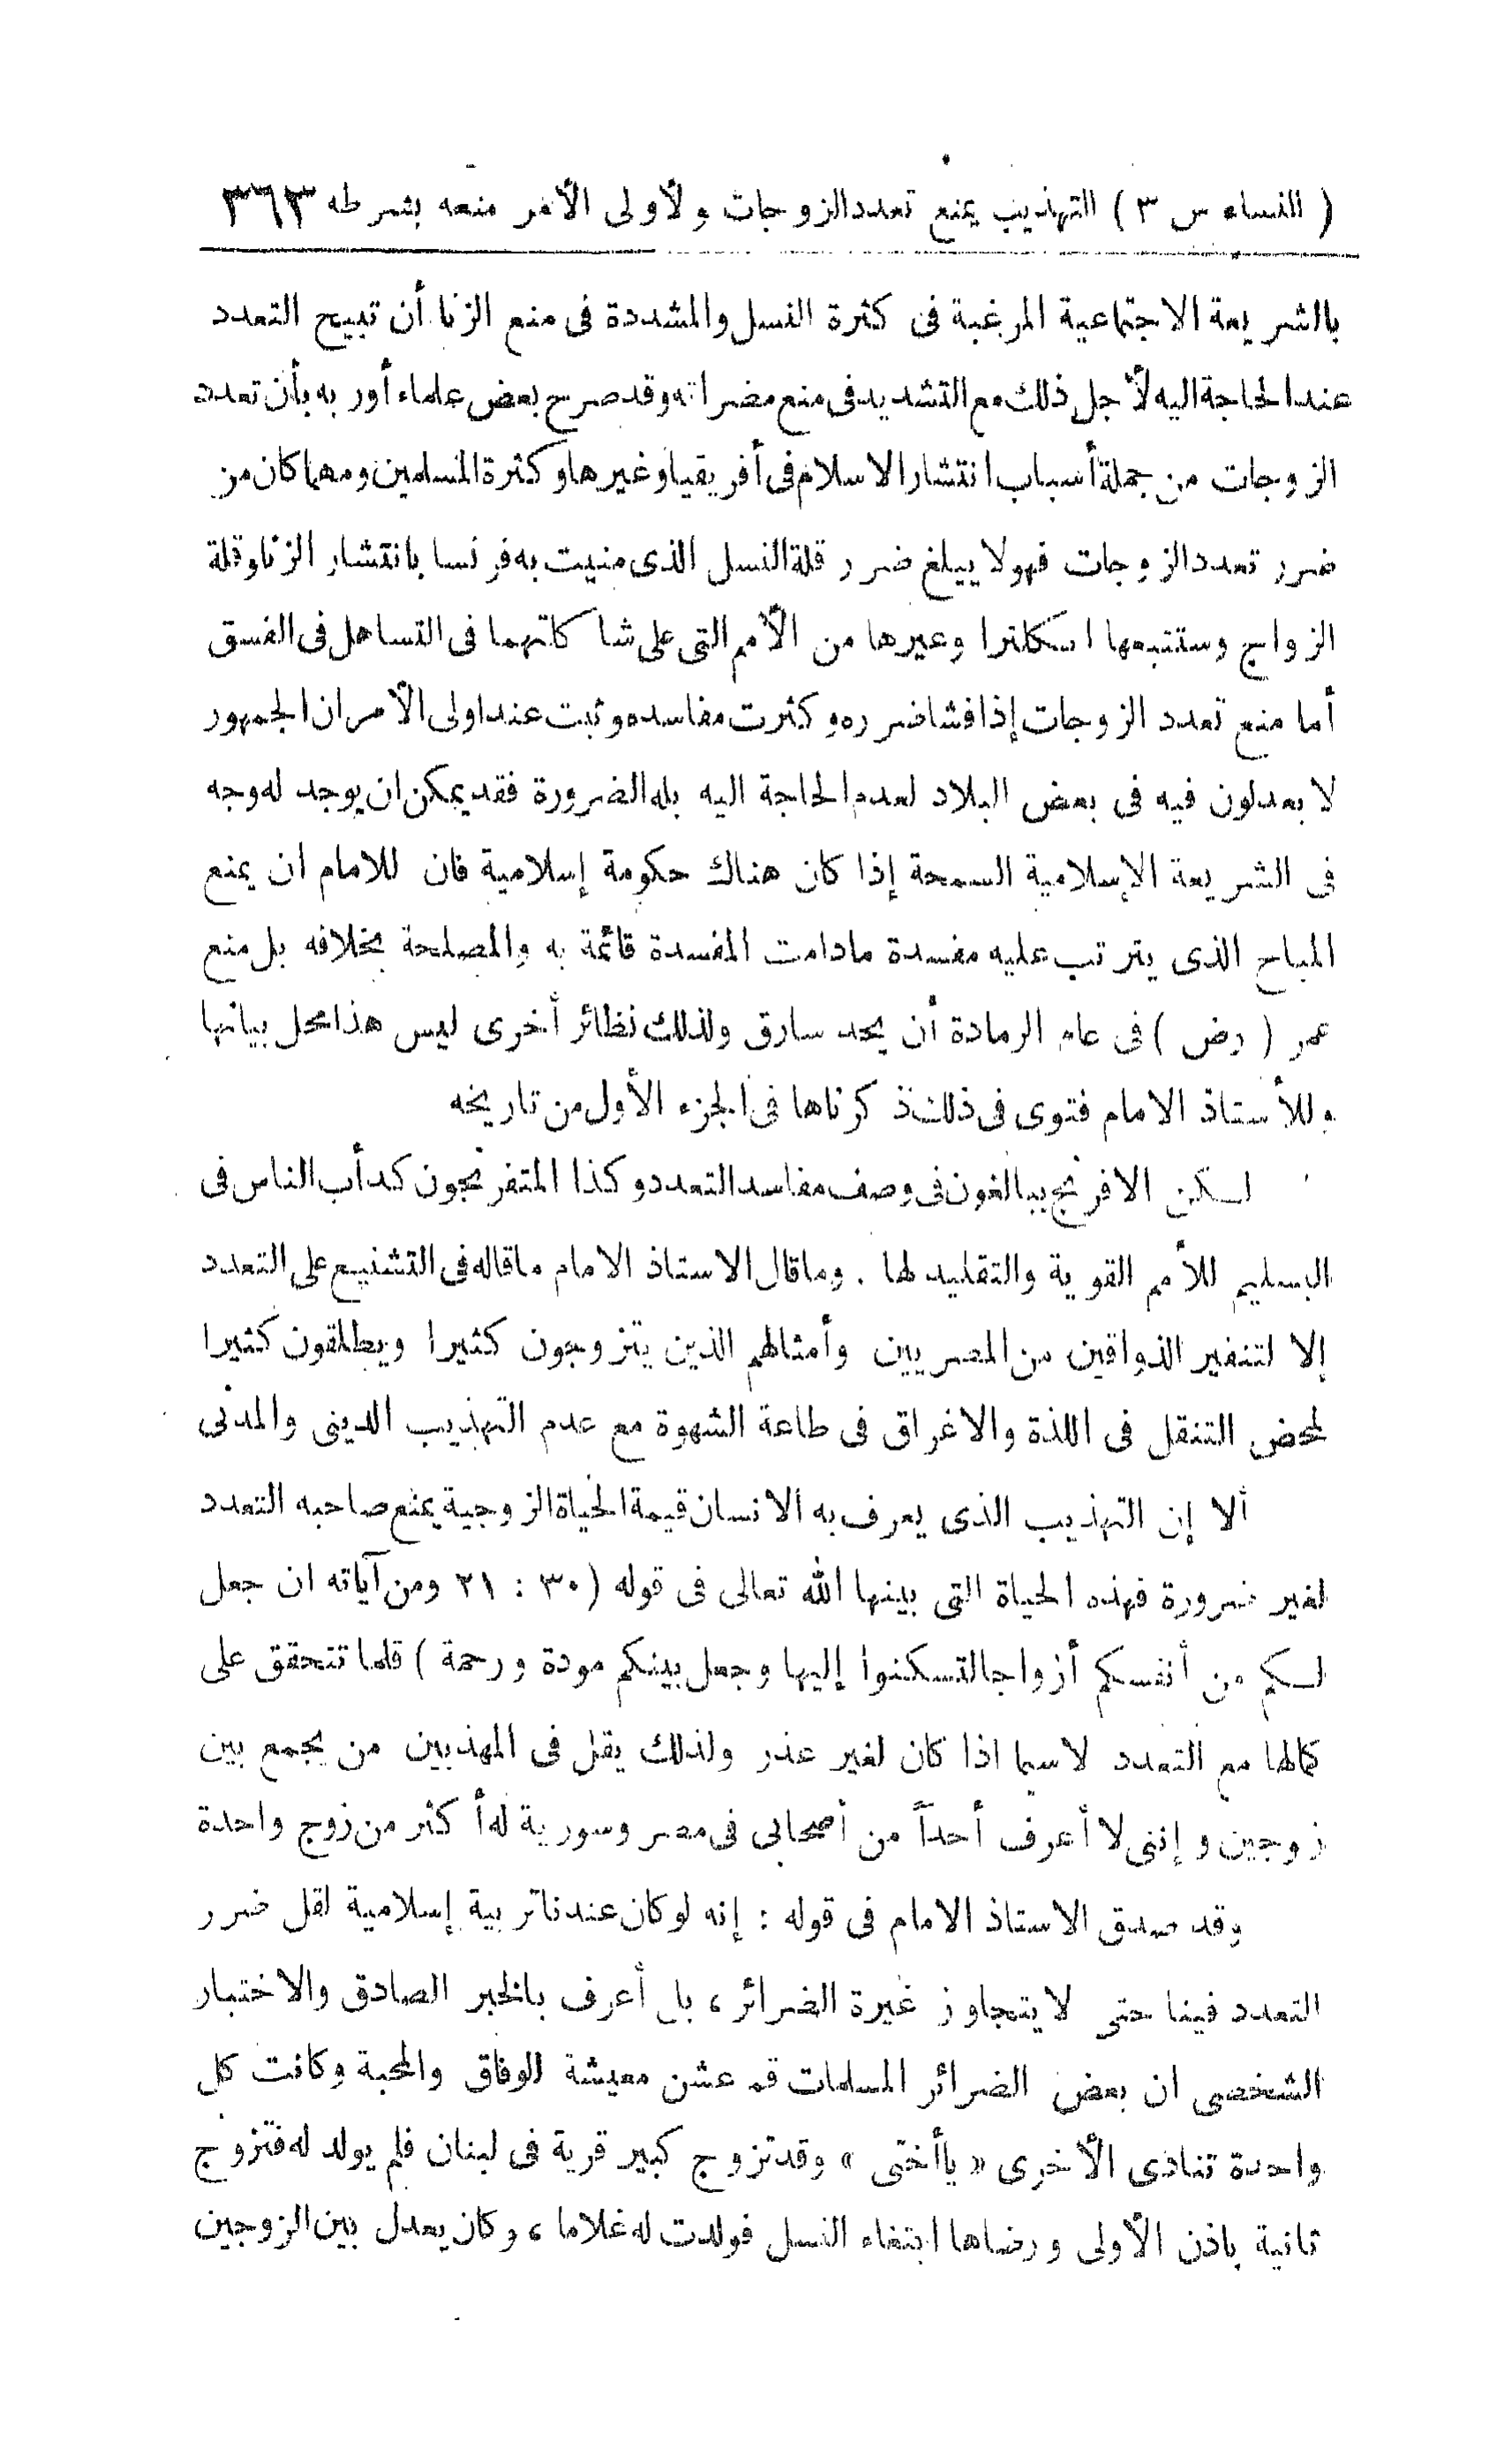 ( النساء س ٣ ) التهذيب يمنع تعدد الزوجات ولأولى الأمر منعه بشرطه ٣٦٣
بالشريعة الاجتماعية المرغبة فى كثرة النسل والمشددة فى منع الزنا أن تبيح التعدد
عند الحاجة اليه لأجل ذلك مع التشديد فى منع مضراته وقد صرح بعض علماء أوربه بأن تعدد
الزوجات من جملة أسباب انتشار الاسلام فى أفريقيا وغيرها وكثرة المسلمين ومهما كان من
ضرر تعدد الزوجات فهو لا يبلغ ضرر قلة النسل الذى منيت به فرنسا بانتشار الزنا وقلة
الزواج وستتبعها انكلترا وغيرها من الأمم التى على شاكلتهما فى التساهل فى الفسق
أما منع تعدد الزوجات إذا فشا ضرره وكثرت مفاسده وثبت عند اولى الأمر ان الجمهور
لا يعدلون فيه فى بعض البلاد لعدم الحاجة اليه بله الضرورة فقد يمكن ان يوجد له وجه
فى الشريعة الإسلامية السمحة إذا كان هناك حكومة إسلامية فان للامام ان يمنع
المباح الذى يترتب عليه مفسدة مادامت المفسدة قائمة به والمصلحة بخلافه بل منع
عمر ( رض ) فى عام الرمادة أن يحد سارق ولذلك نظائر أخرى ليس هذا محل بيانها
وللأستاذ الامام فتوى فى ذلك ذكرناها فى الجزء الأول من تاريخه
لكن الافرنج يبالغون فى وصف مفاسد التعدد وكذا المتفرنجون كدأب الناس فى
التسليم للأمم القوية والتقليد لها . وما قال الاستاذ الامام ما قاله فى التشنيع على التعدد
إلا لتنفير الذواقين من المصريين وأمثالهم الذين يتزوجون كثيرا ويطلقون كثيرا
لمحض التنقل فى اللذة والاغراق فى طاعة الشهوة مع عدم التهذيب الدينى والمدنى
ألا إن التهذيب الذى يعرف به الانسان قيمة الحياة الزوجية يمنع صاحبه التعدد
لغير ضرورة فهذه الحياة التى بينها الله تعالى فى قوله ( ٣٠ : ٢١ ومن آياته ان جعل
لكم من أنفسكم أزواجا لتسكنوا إليها وجعل بينكم مودة ورحمة ) قلما تتحقق على
كمالها مع التعدد لاسيما اذا كان لغير عذر ولذلك يقل فى المهذبين من يجمع بين
زوجين وإننى لا أعرف أحداً من أصحابى فى مصر وسورية له أكثر من زوج واحدة
وقد صدق الاستاذ الامام فى قوله : إنه لو كان عندنا تربية إسلامية لقل ضرر
التعدد فينا حتى لا يتجاوز غيرة الضرائر ، بل أعرف بالخبر الصادق والاختبار
الشخصى ان بعض الضرائر المسلمات قد عشن معيشة الوفاق والمحبة وكانت كل
واحدة تنادى الأخرى « يا أختى » وقد تزوج كبير قرية فى لبنان فلم يولد له فتزوج
ثانية باذن الأولى ورضاها ابتغاء النسل فولدت له غلاما ، وكان يعدل بين الزوجين